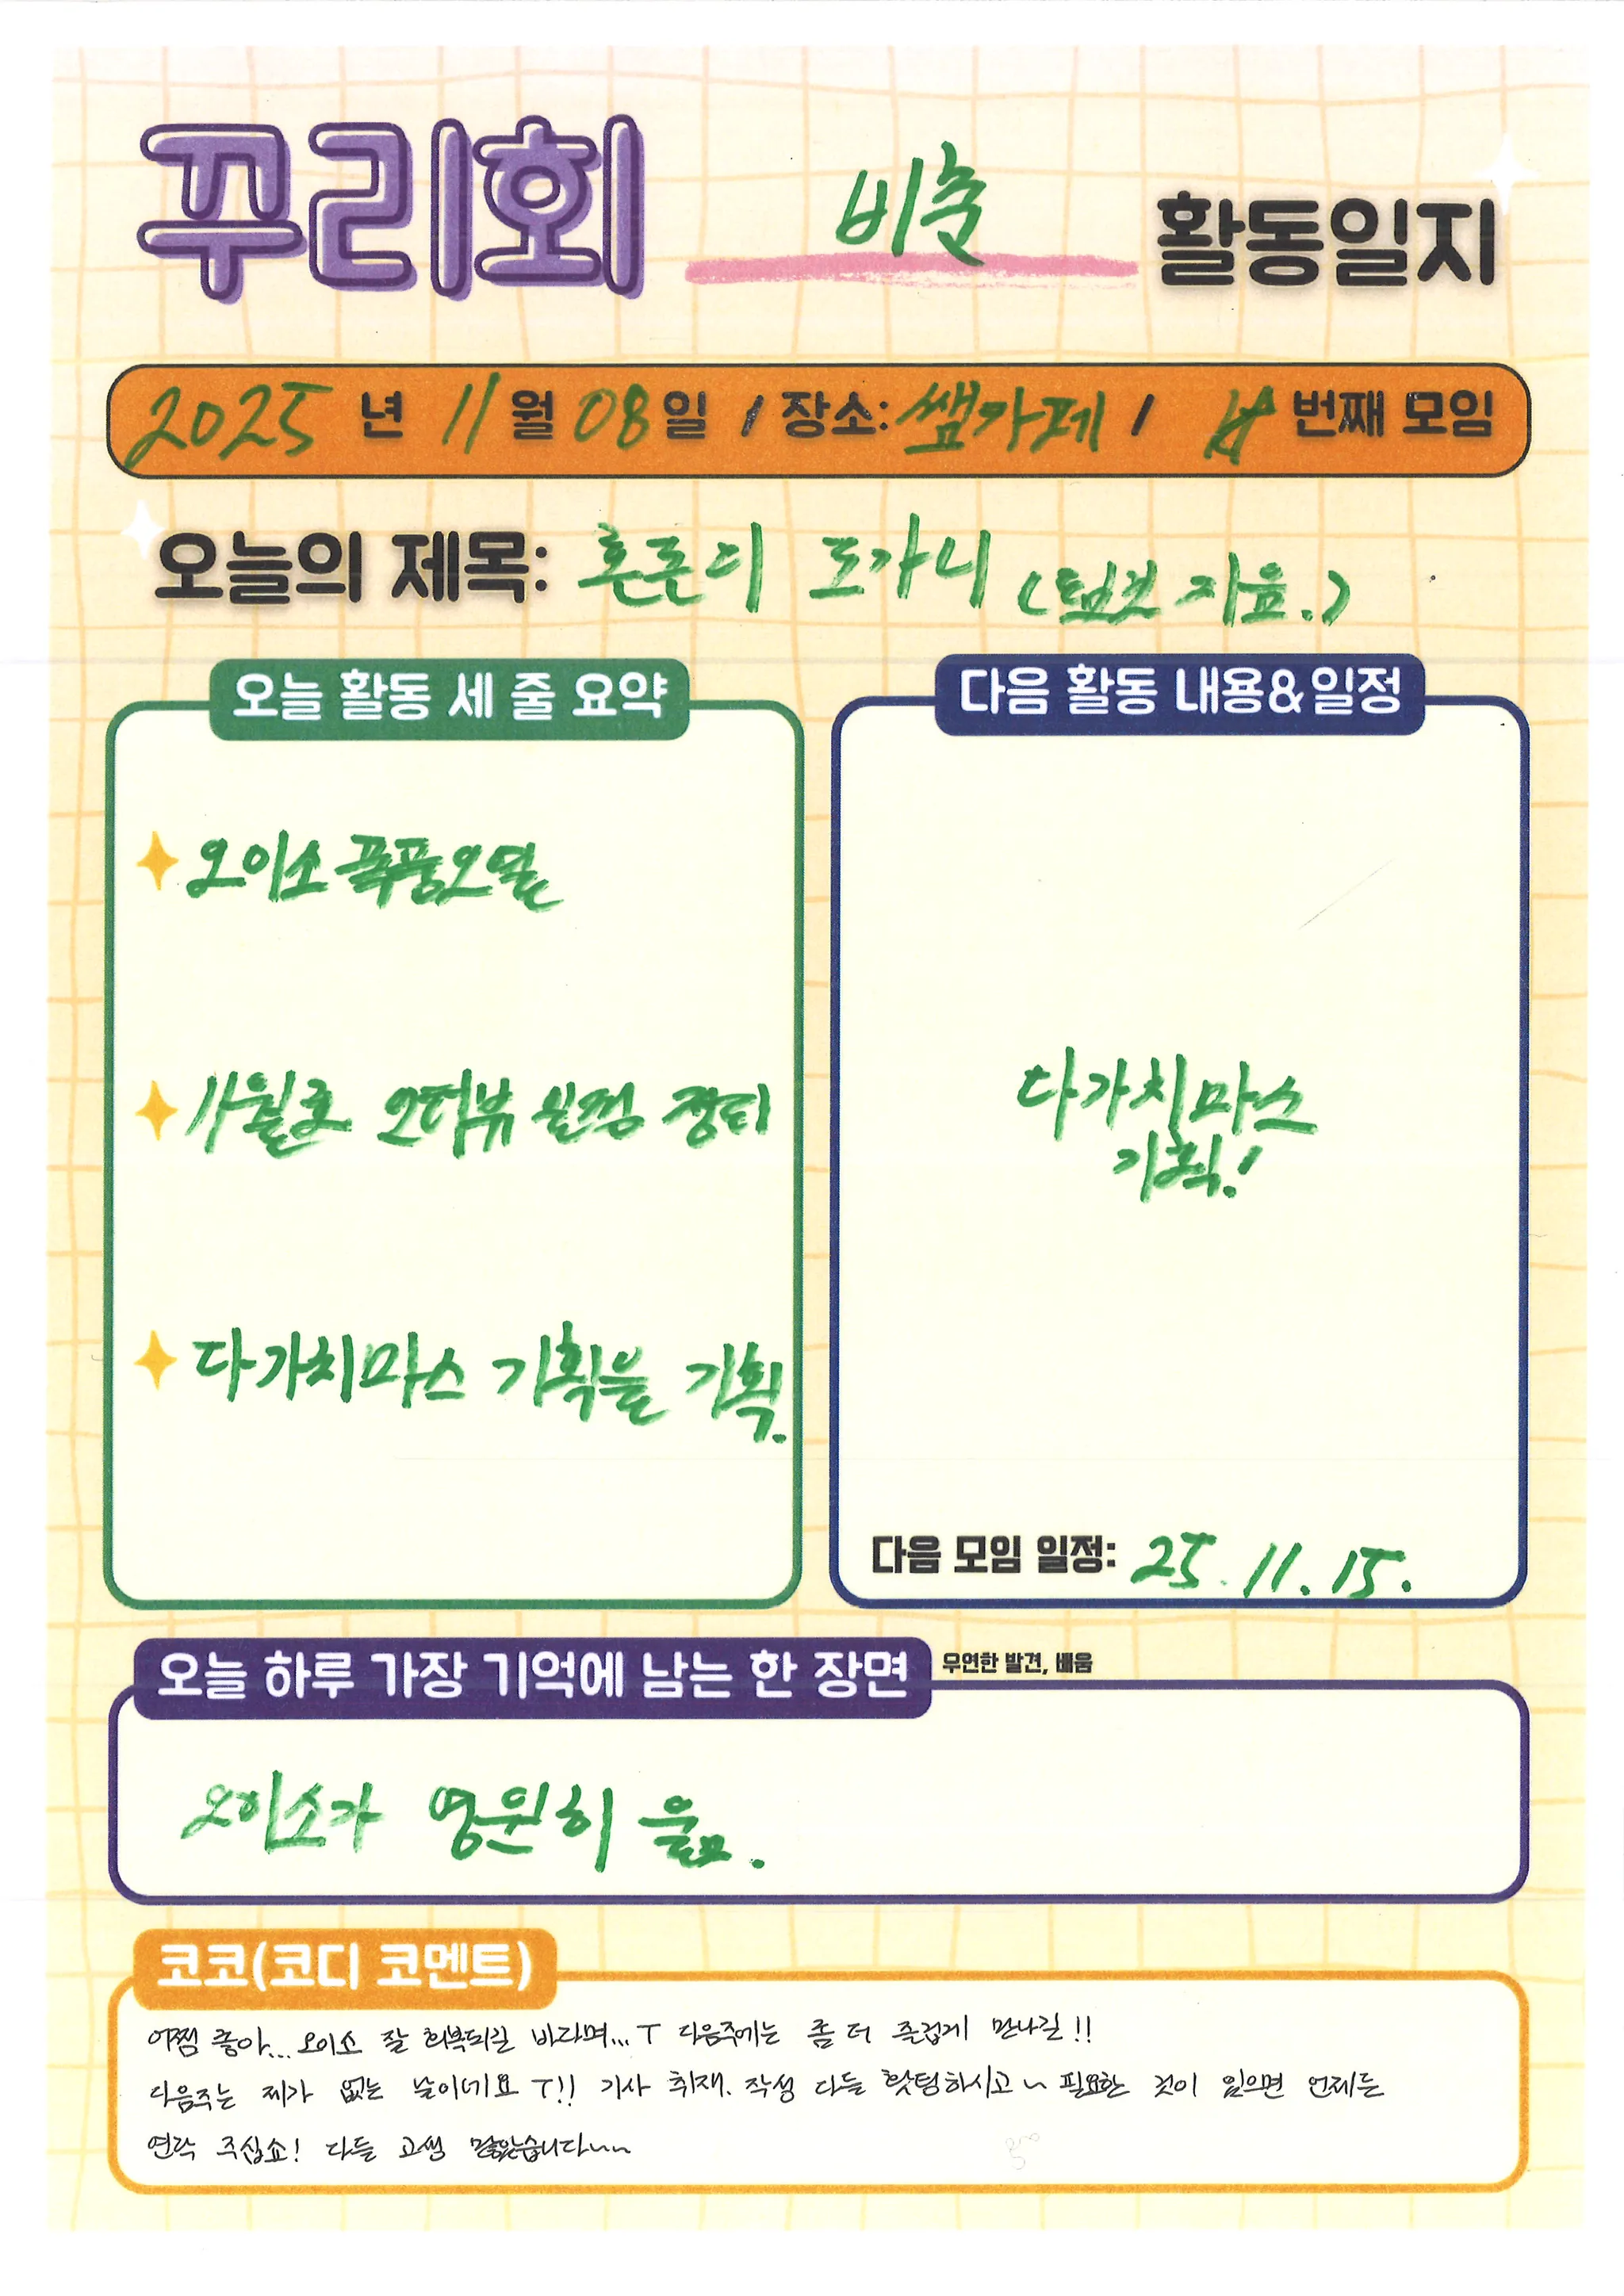 꾸리회 비춘 활동일지
2025 년 11 월 08 일 / 장소: 쌤카페 / 번째 모임
오늘의 제목: 혼돈의 도가니 (텀블 지음.)
오늘 활동 세 줄 요약
오이소 폭풍오열
11월호 인터뷰 일정 정리
다가치마스 기획을 기획.
다음 활동 내용&일정
다가치마스
기획!
다음 모임 일정: 25. 11. 15.
오늘 하루 가장 기억에 남는 한 장면 우연한 발견, 배움
오이소가 영원히 욺.
코코(코디 코멘트)
어쩜 좋아... 오이소 잘 회복되길 바라며...ㅜ 다음주에는 좀 더 즐겁게 만나길!!
다음주는 제가 없는 날이네요 ㅜ!! 기사 취재. 작성 다들 핫팅하시고~ 필요한 것이 있으면 언제든
연락 주십쇼! 다들 고생 많았습니다~~